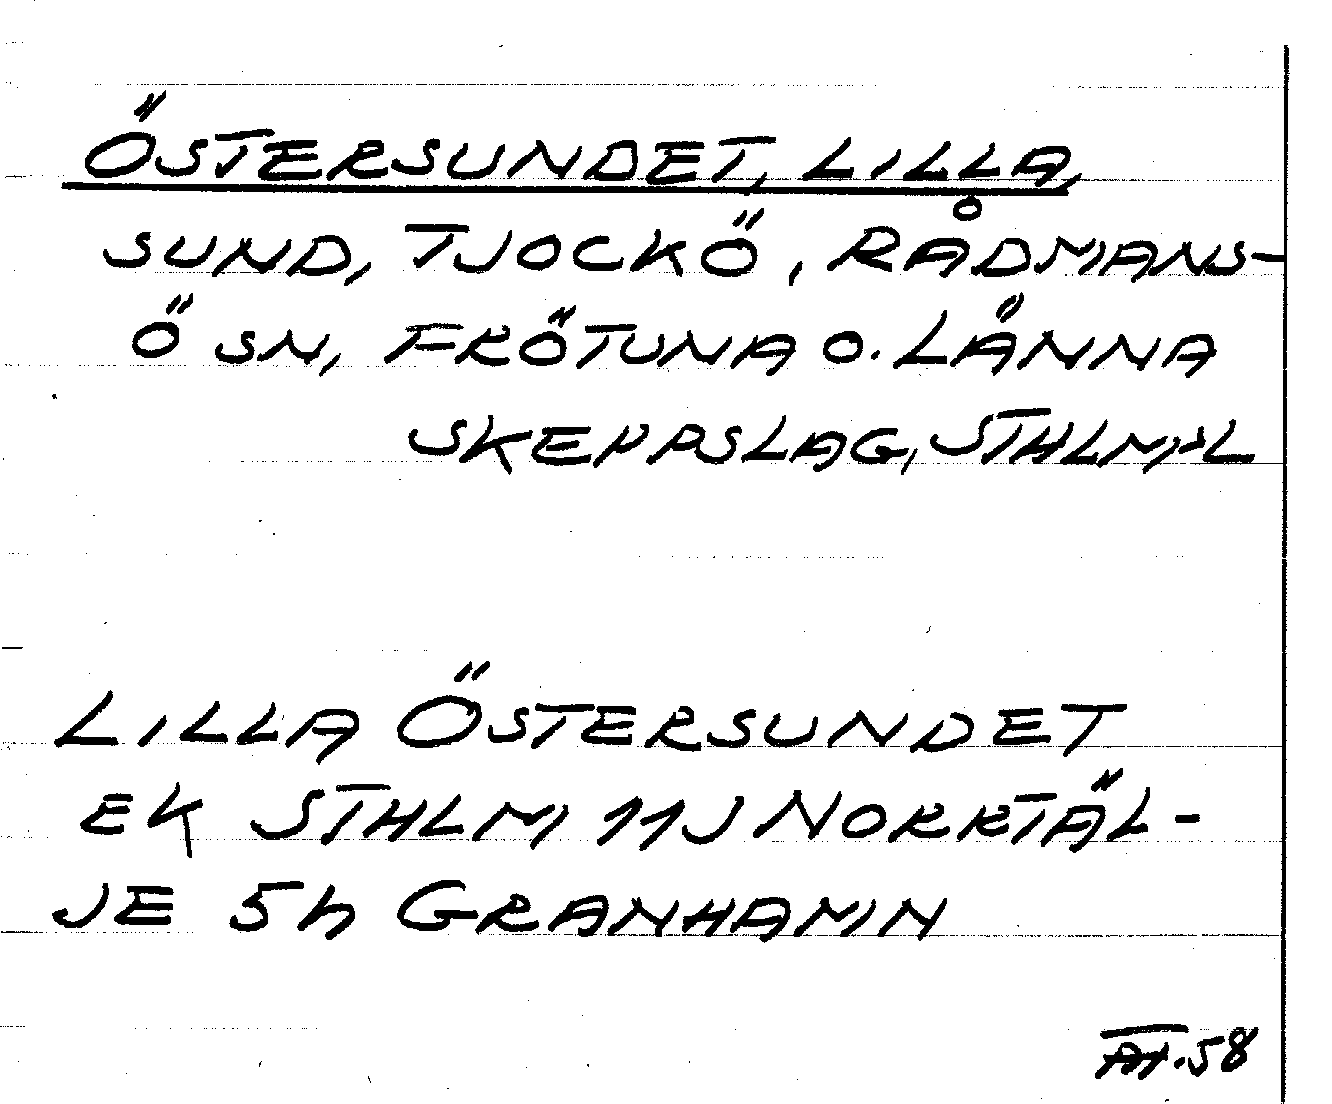 ÖSTERSUNDET, LILLA,
SUND, TJOCKÖ, RÅDMANS-
Ö SN, FRÖTUNA O. LÄNNA
SKEPPSLAG, STHLMS L
LILLA ÖSTERSUNDET
EK STHLM 11J NORRTÄL-
JE 5h GRANHAMN
58